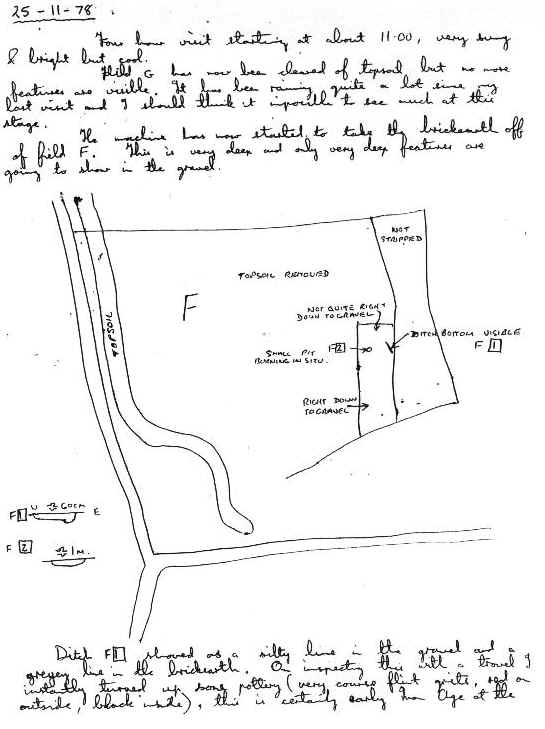 25-11-78
Four hour visit starting at about 11.00, very sunny
& bright but cool.
Field G has now been cleared of topsoil, but no more
features are visible. It has been raining quite a lot since my
last visit and I should think it impossible to see much at this
stage.
The machine has now started to take the brickearth off
of field F. This is very deep and only very deep features are
going to show in the gravel.
NOT
STRIPPED
TOPSOIL REMOVED
F
TOPSOIL
NOT QUITE RIGHT
DOWN TO GRAVEL
DITCH BOTTOM VISIBLE
F 1
F2
SMALL PIT
BURNING IN SITU.
RIGHT DOWN
TO GRAVEL
F1 W 60cm E
F 2 1M.
Ditch F1 showed as a silty line in the gravel and a
greyey line in the brickearth. On inspecting this with a trowel I
instantly turned up some pottery (very course flint grits, red on
outside, black inside), this is certainly early Iron Age at the